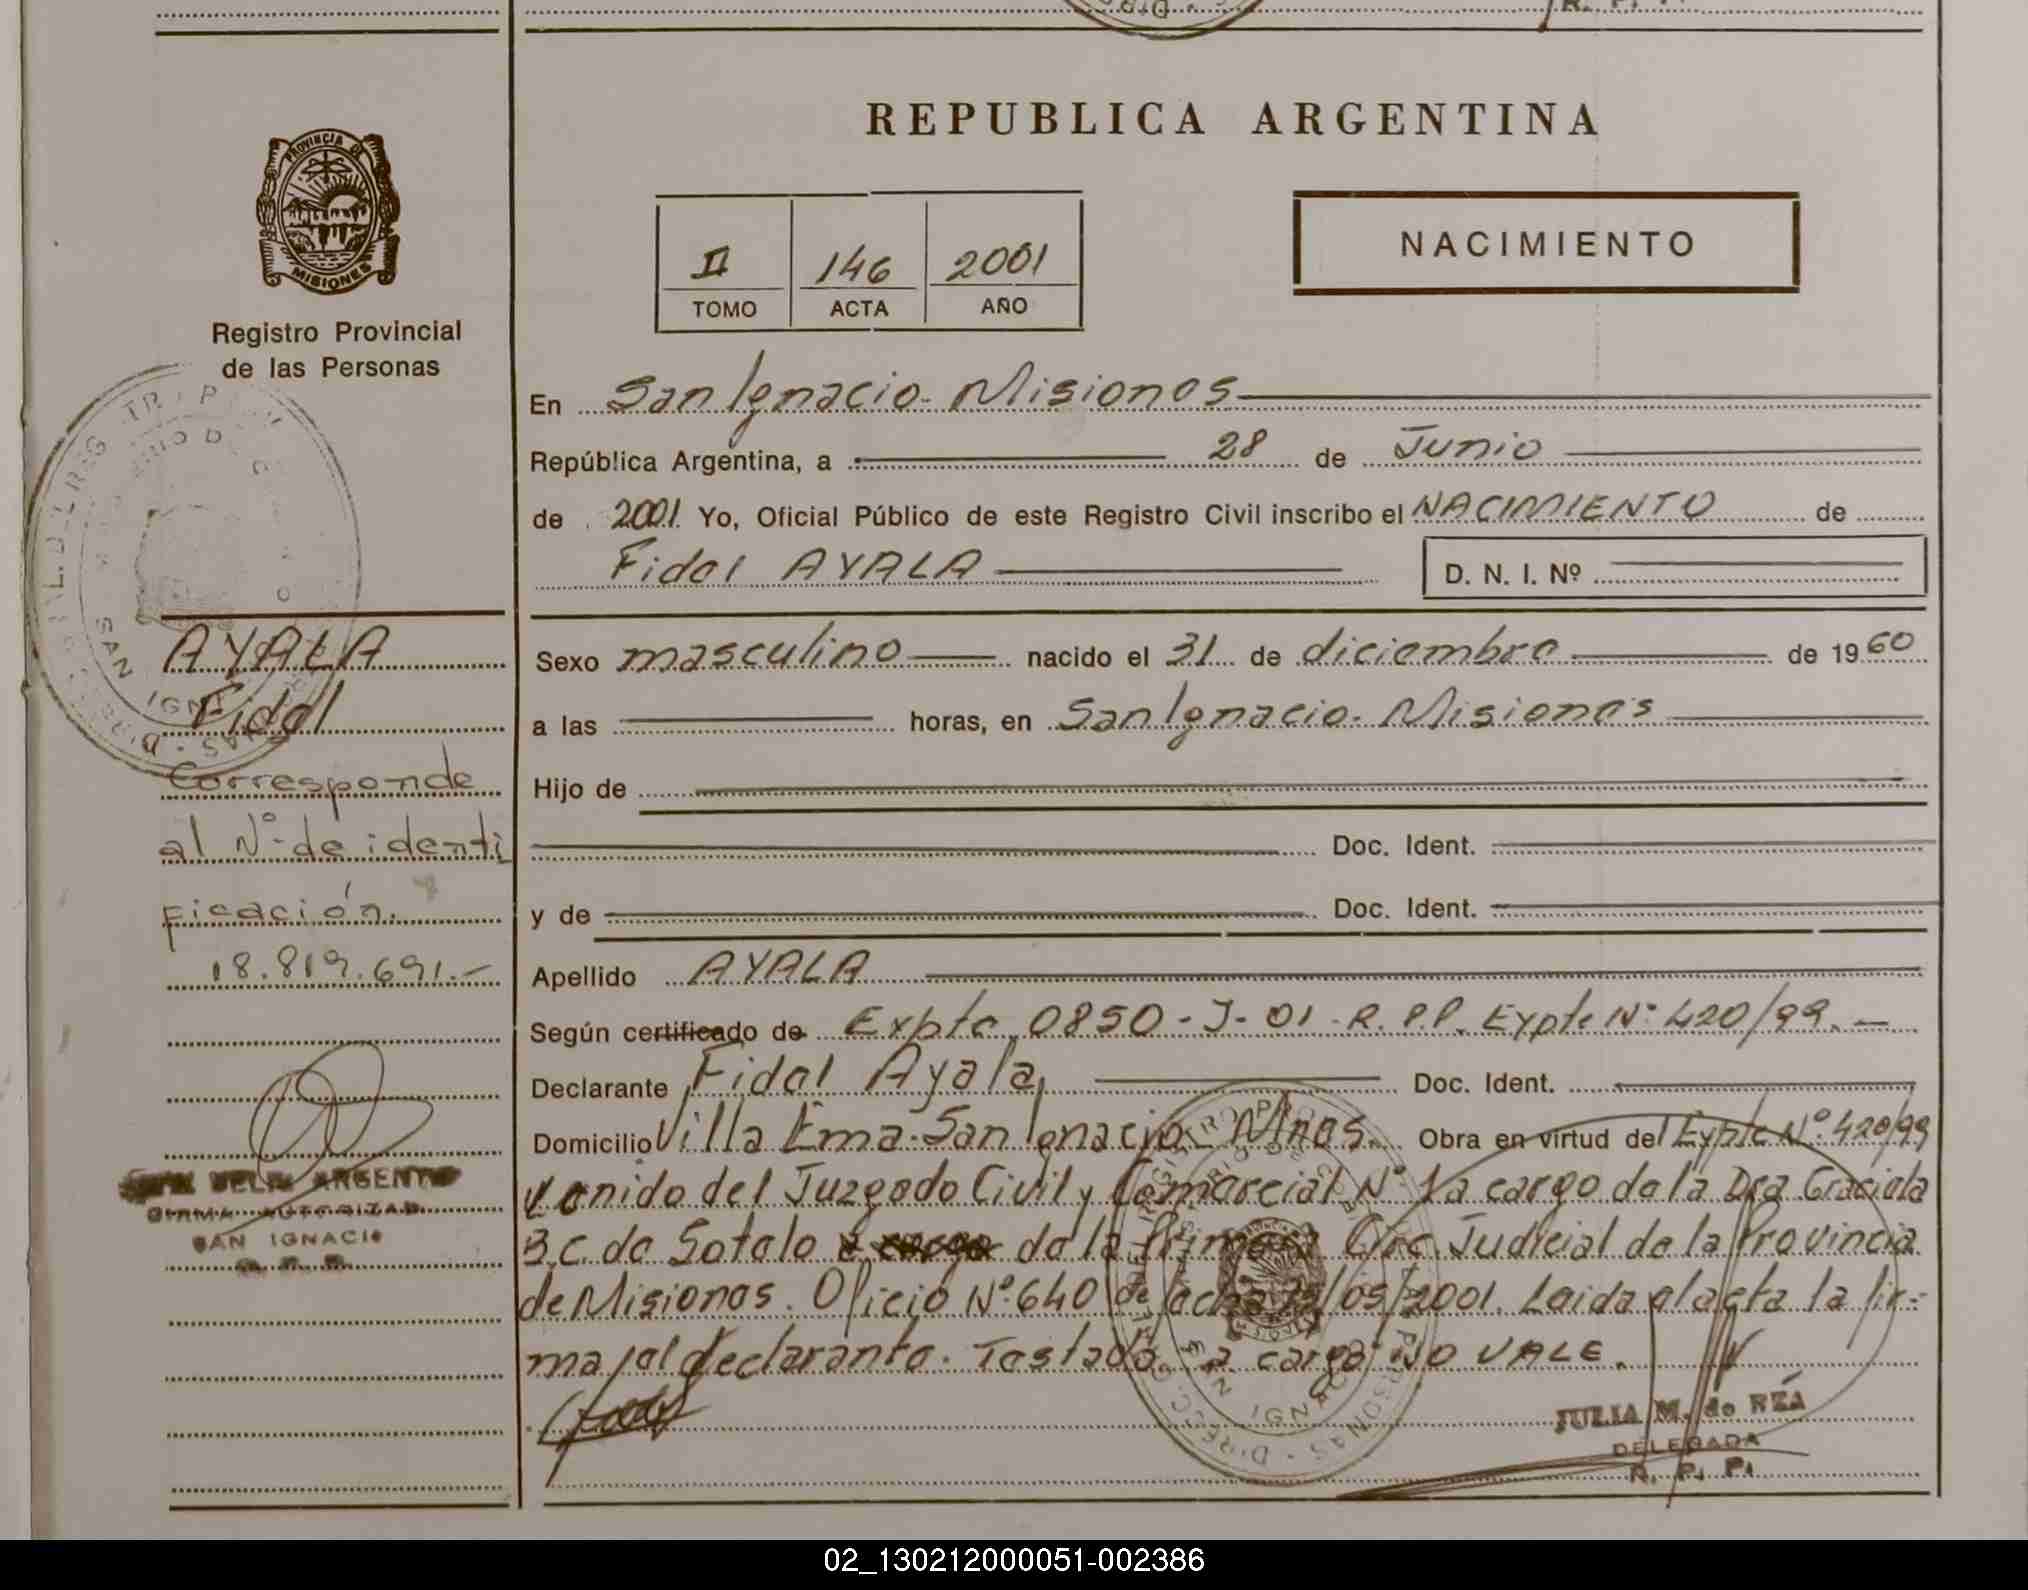 REPUBLICA ARGENTINA
PROVINCIA DE
MISIONES
Registro Provincial
de las Personas
II 146 2001
TOMO ACTA AÑO
NACIMIENTO
En San Ignacio - Misiones
República Argentina, a 28 de Junio
de 2001 Yo, Oficial Público de este Registro Civil inscribo el NACIMIENTO de
Fidel AYALA D. N. I. Nº
AYALA
Fidel
Corresponde
al Nº de identi
ficación.
18.819.691.-
ARGENTINO
FIRMA AUTORIZAD
SAN IGNACIO
Sexo masculino nacido el 31 de diciembre de 1960
a las horas, en San Ignacio - Misiones
Hijo de
Doc. Ident.
y de Doc. Ident.
Apellido AYALA
Según certificado de Expte 0850-J-01-R.P.P. Expte Nº 420/99.-
Declarante Fidel Ayala, Doc. Ident.
Domicilio Villa Ema - San Ignacio - Mnes. Obra en virtud del Expte Nº 420/99
venido del Juzgado Civil y Comercial Nº 1 a cargo de la Dra Graciela
B.C. de Sotelo a cargo de la Primera Circ. Judicial de la Provincia
de Misiones. Oficio Nº 640 de fecha /05/2001. Leida el acta la fir-
ma el declarante. Testado: a cargo: NO VALE.
JULIA M. de REA
DELEGADA
R. P. P.
02_130212000051-002386